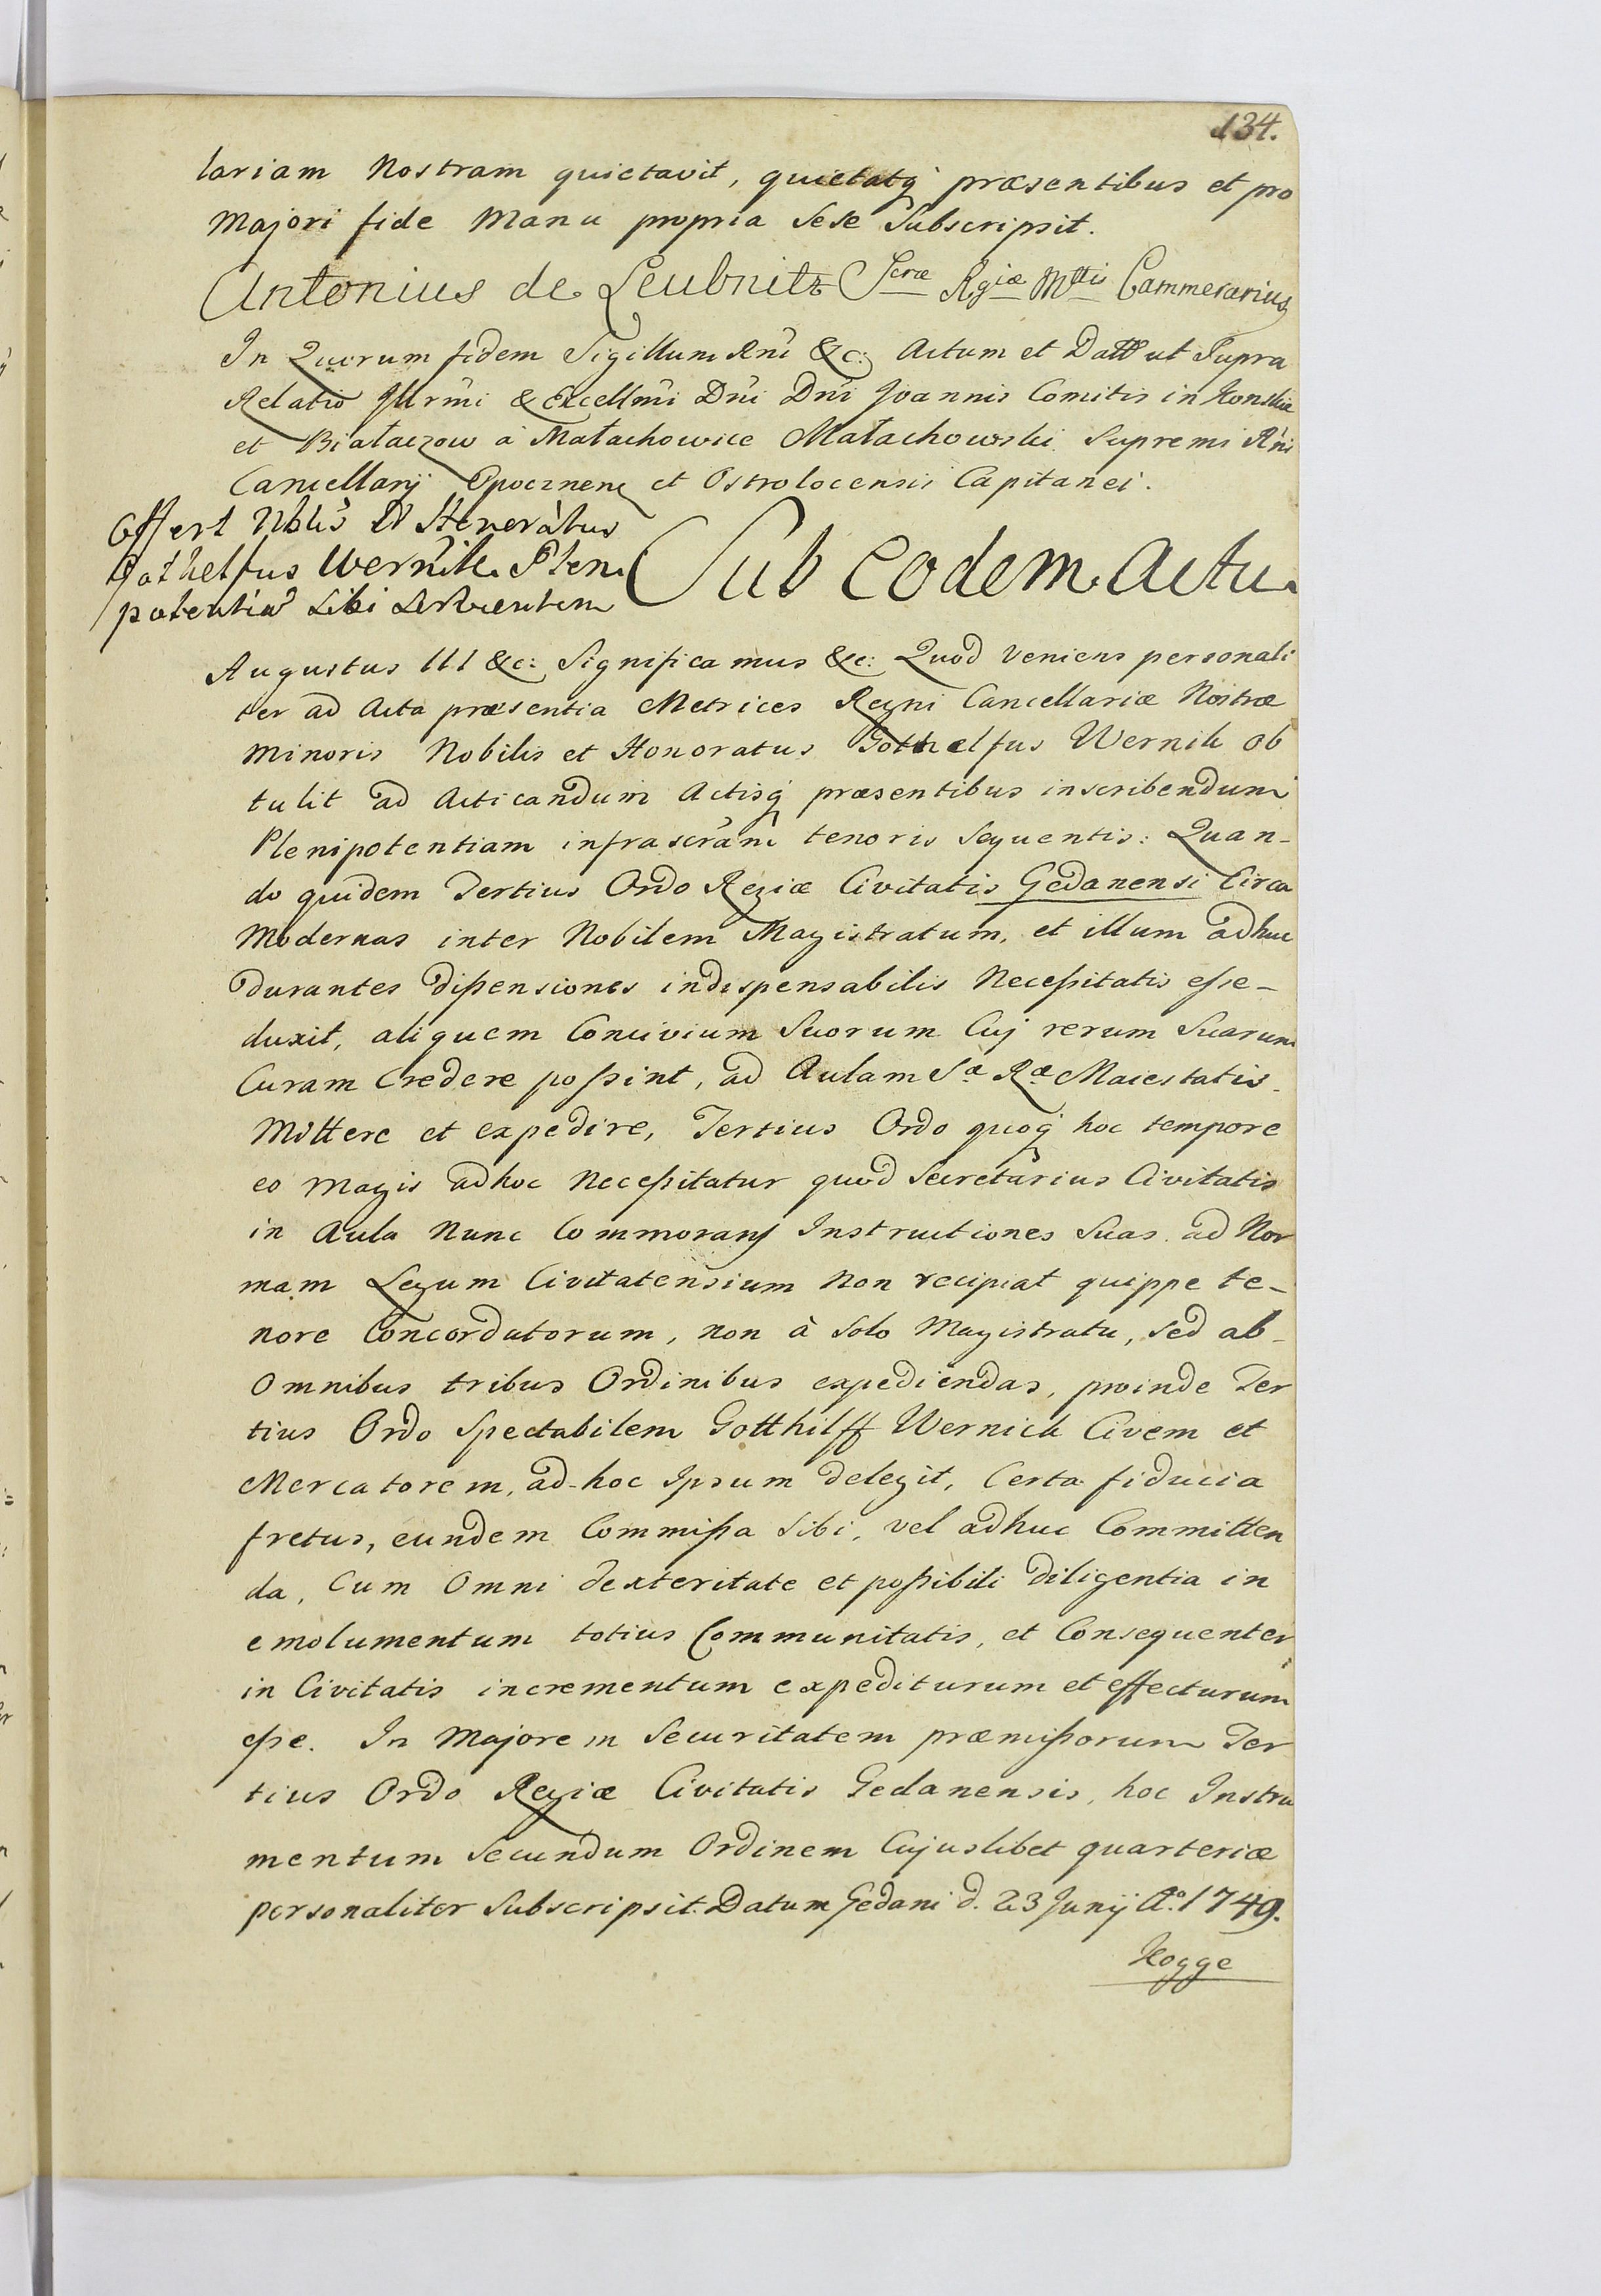 134.
lariam Nostram quietavit, quietatq præsentibus et pro
Majori fide Manu propria Sese Subscripsit.
Antonius de Leubnitz Scræ Rgiæ Mttis Cammerarius
In Quorum fidem Sigillum Rni &c: Actum et Datt ut Supra
Relatio Illrmi & Excellmi Dni Dni Joannis Comitis in Konskie
et Białaczow à Małachowice Małachowski Supremi Rni
Cancellarij Opocznen et Ostrolocensis Capitanei.
Offert Nblis et Honeratus
Gothelfus Wernik Plen
potentia Sibi Servientem
Sub eodem Actu
Augustus III &c: Significamus &c: Quod Veniens personali
ter ad Acta præsentia Metrices Regni Cancellariæ Nostræ
Minoris Nobilis et Honoratus Gothelfus Wernik ob
tulit ad Acticandum Actisq præsentibus inscribendum
Plenipotentiam infrascram tenoris Sequentis: Quan-
do quidem Tertius Ordo Regiæ Civitatis Gedanensi Circa
Modernas inter Nobilem Magistratum, et illum adhuc
durantes dißensiones indispensabilis Neceßitatis eße-
duxit, aliquem Concivium Suorum Cuj rerum Suarum
Curam Credere poßint, ad Aulam Sæ Ræ Maiestatis
Mittere et expedire, Tertius Ordo quoq hoc tempore
eo Magis adhoc Neceßitatur quod Secretarius Civitatis
in Aula Nunc Commorans Instructiones Suas ad Nor
mam Legum Civitatensium Non recipiat quippe te-
nore Concordatorum, non à Solo Magistratu, Sed ab-
Omnibus tribus Ordinibus expediendas, proinde Ter
tius Ordo Spectabilem Gotthilff Wernick Civem et
Mercatorem, ad-hoc Ipsum delegit, Certa fiducia
fretus, eundem Commißa Sibi, vel adhuc Committen
da, Cum Omni dexteritate et poßibili diligentia in
emolumentum totius Communitatis, et Consequenter
in Civitatis incrementum expediturum et effecturum
eße. In Majorem Securitatem præmißorum Ter
tius Ordo Regiæ Civitatis Gedanensis, hoc Instru
mentum Secundum Ordinem Cujuslibet quarteriæ
personaliter Subscripsit. Datum Gedani d. 23 Junij Ao. 1749.
Kogge